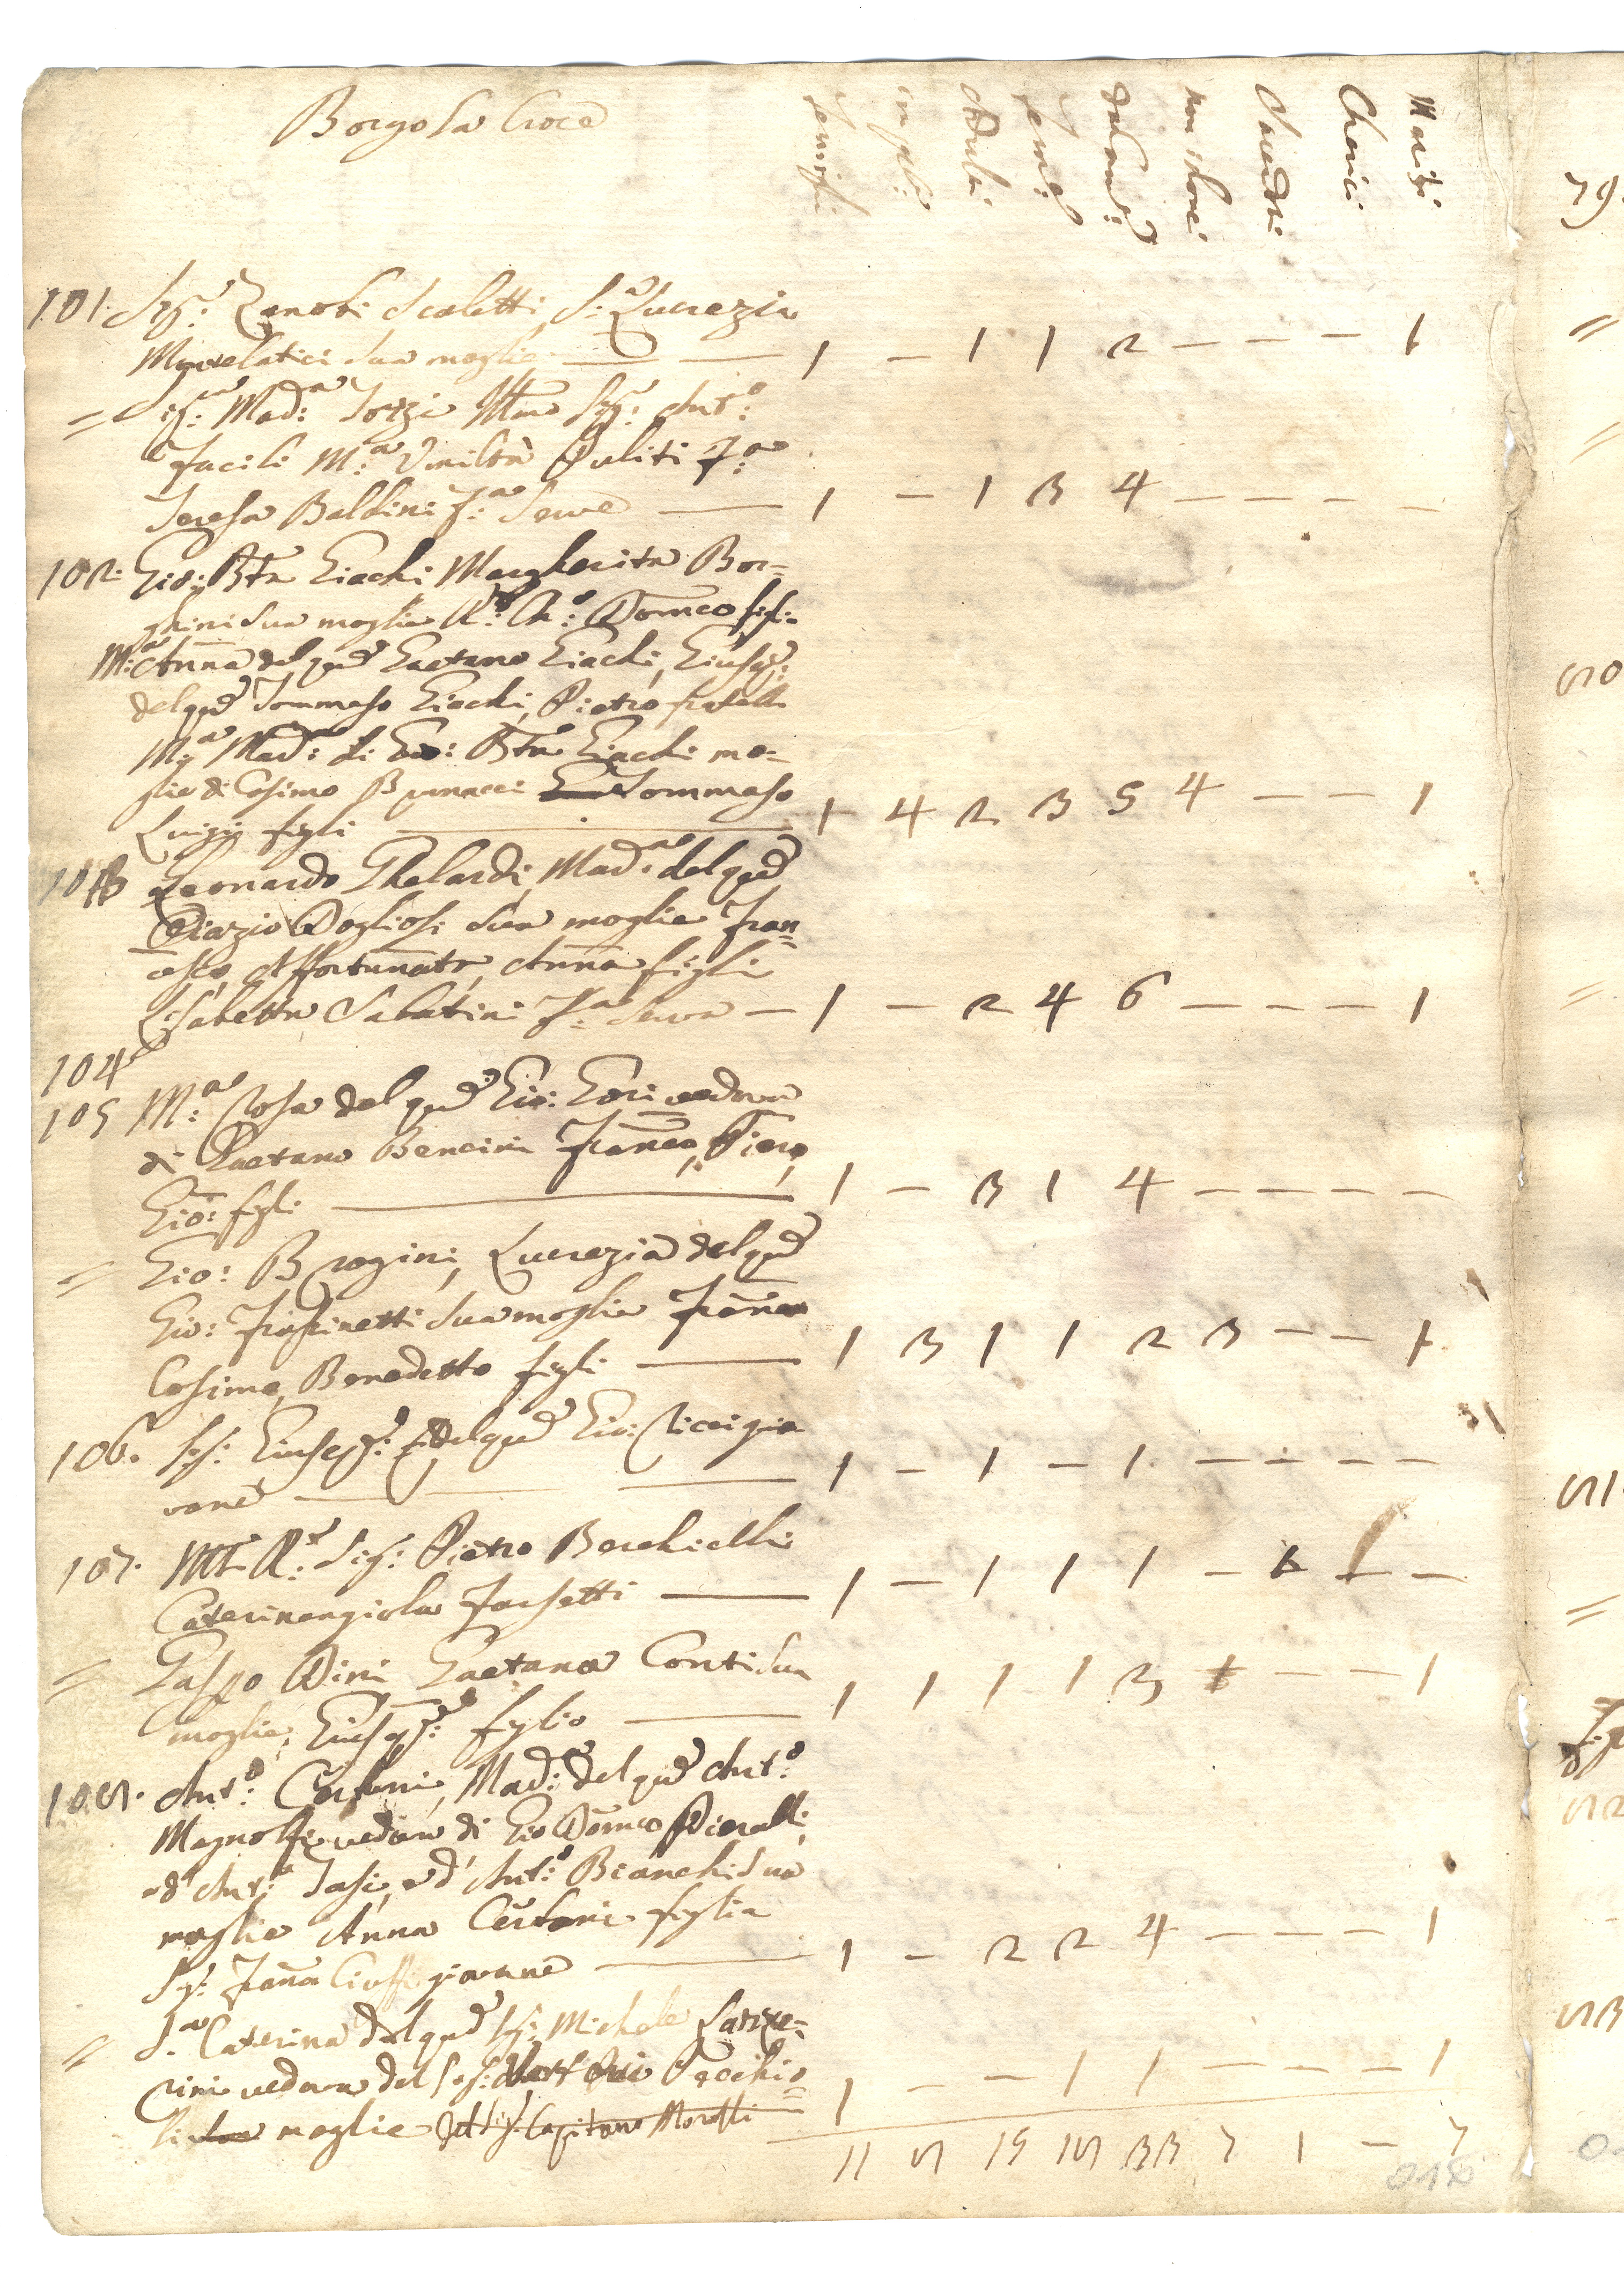 Borgo la Croce
famigli:
in gli:
Adulti
Fem:e
da Com:e
non idonei
Sacerdoti
Cherici
Mariti
101. Sig:r Zenobi Scaletti, S:a Lucrezia
Morelatici sua moglie — 1 — 1 1 2 — — — 1
= Sig:ra Mad:na Sorzi Sig:r Ant:o
Facili M:a Umiltà Puliti F:a
Teresa Baldini F:a Serve — 1 — 1 3 4 — — — —
102. Gio: Bta Giachi Margherita Bor-
ghini sua moglie R:o Ch:o Domco figli
M:a Anna del qud Gaetano Giachi, Giusep:
del qud Tommaso Giachi, Pietro fratelli
M:a Mad:na di Gio: Bta Giachi mo-
glie di Cosimo Bonacci Tommaso
Luigi figli — 1 4 2 3 5 4 — — 1
103 Leonardo Ghelardi, Mad:na del qud
Diazio Dogliosi sua moglie Fran=
cesco, Affortunato, Anna figli
Lisabetta Sabatini F:a Serva — 1 — 2 4 6 — — — 1
104
105 M:a Rosa del qud Gio: Gori vedova
di Gaetano Bencini Franco, Piero,
Gio: figli — 1 — 3 1 4 — — — —
= Gio: Brogini, Lucrezia del qud
Gio: Frassinetti sua moglie Franco
Cosimo, Benedetto figli — 1 3 1 1 2 3 — — 1
106. Sig: Giusep:e del qud Gio: Ricci gio-
vane — 1 — 1 — 1 — — — —
107. Mto R:do Sig: Pietro Berchielli
Caterinangiola Fassetti — 1 — 1 1 1 — 1 — —
= Gaspo Dini Gaetana Conti sua
moglie, Giusep:e figlio — 1 1 1 1 3 — — 1
108. Ant:o Cerboni, Mad:na del qud Ant:o
Magnolfi vedova di Gio Domco Pieralli
ed Ant:o Tasi, ed Ant:o Bianchi sua
moglie Anna Cerboni figlia
Sig: Franca Cioffi giovane — 1 — 2 2 4 — — — 1
= S:a Caterina del qud Sig: Michele
rini vedova del Sig: Vecchio
li moglie del Sig: Capitano Morelli — 1 — — 1 1 — — — 1
11 8 15 18 33 7 1 — 7